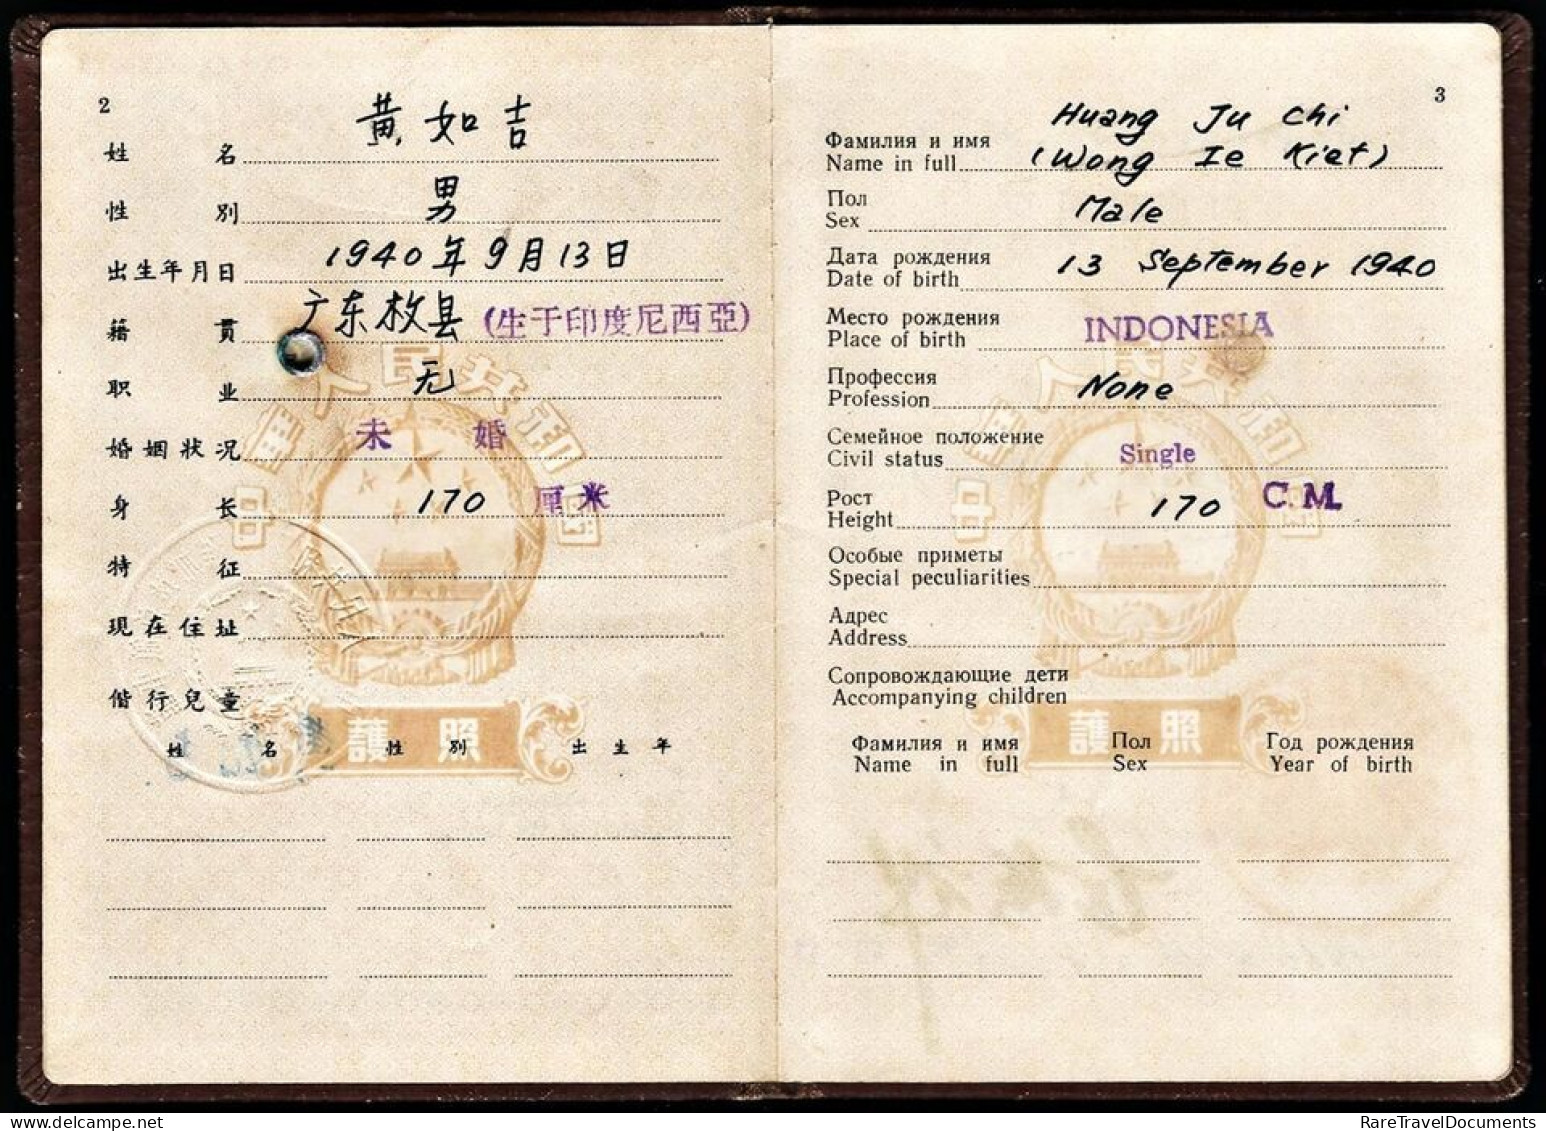 2
姓 名 黄如吉
性 别 男
出生年月日 1940年9月13日
籍 贯 广东枚县 (生于印度尼西亞)
职 业 无
婚姻狀况 未 婚
身 长 170 厘米
特 征
現在住址
偕行兒童
姓 名 性 别 出 生 年
中華人民共和國
護照
3
Huang Ju Chi
Фамилия и имя
Name in full (Wong Ie Kiat)
Пол
Sex Male
Дата рождения
Date of birth 13 September 1940
Место рождения
Place of birth INDONESIA
Профессия
Profession None
Семейное положение
Civil status Single
Рост
Height 170 C.M.
Особые приметы
Special peculiarities
Адрес
Address
Сопровождающие дети
Accompanying children
Фамилия и имя Пол Год рождения
Name in full Sex Year of birth
中華人民共和國
護照
RareTravelDocuments